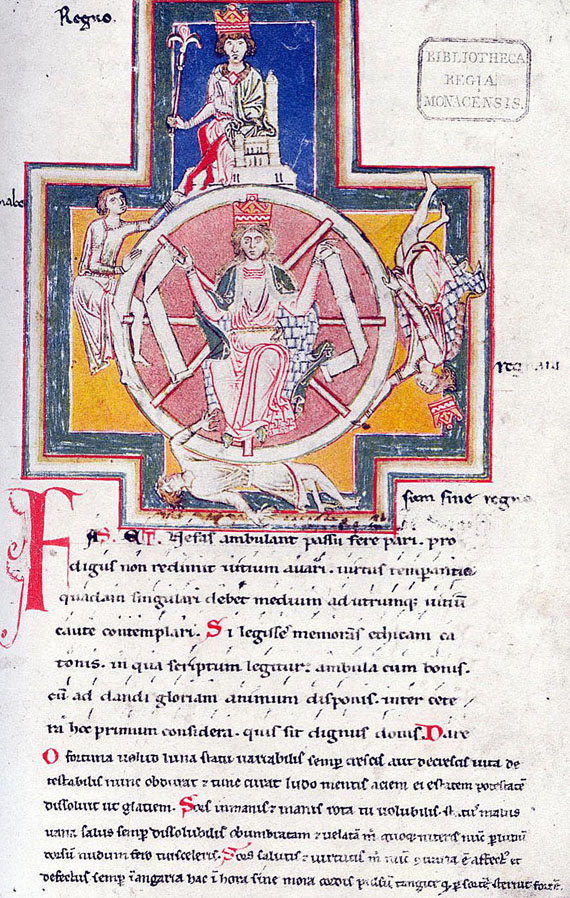 Regno.
BIBLIOTHECA
REGIA
MONACENSIS.
nabo
Regnaui
sum sine regno
FAS ET Nefas ambulant passu fere pari. pro
digus non redimit uitium auari. uirtus temperantia
quadam singulari debet medium ad utrumq; uitiū
caute contemplari. Si legisse memoras ethicam ca
tonis. in qua scriptum legitur. ambula cum bonis.
cū ad dandi gloriam animum disponis. inter cete
ra hoc primum considera. quis sit dignus donis. Dare
O fortuna uelud luna statu uariabilis semp crescis aut decrescis uita de
testabilis nunc obdurat & tunc curat ludo mentis aciem egestatem potestatē
dissoluit ut glatiem. Sors inmanis & inanis rota tu uolubilis. statꝰ malus
uana salus semp dissolubilis obumbratam & uelatā m quoq; niteris nūc p ludū
dorsum nudum fero tui sceleris. Sors salutis & uirtutis m nūc contraria ē affectꝰ et
defectus semp ī angaria hac ī hora sine mora cordis pulsum tangite q p sortē sternit fortē